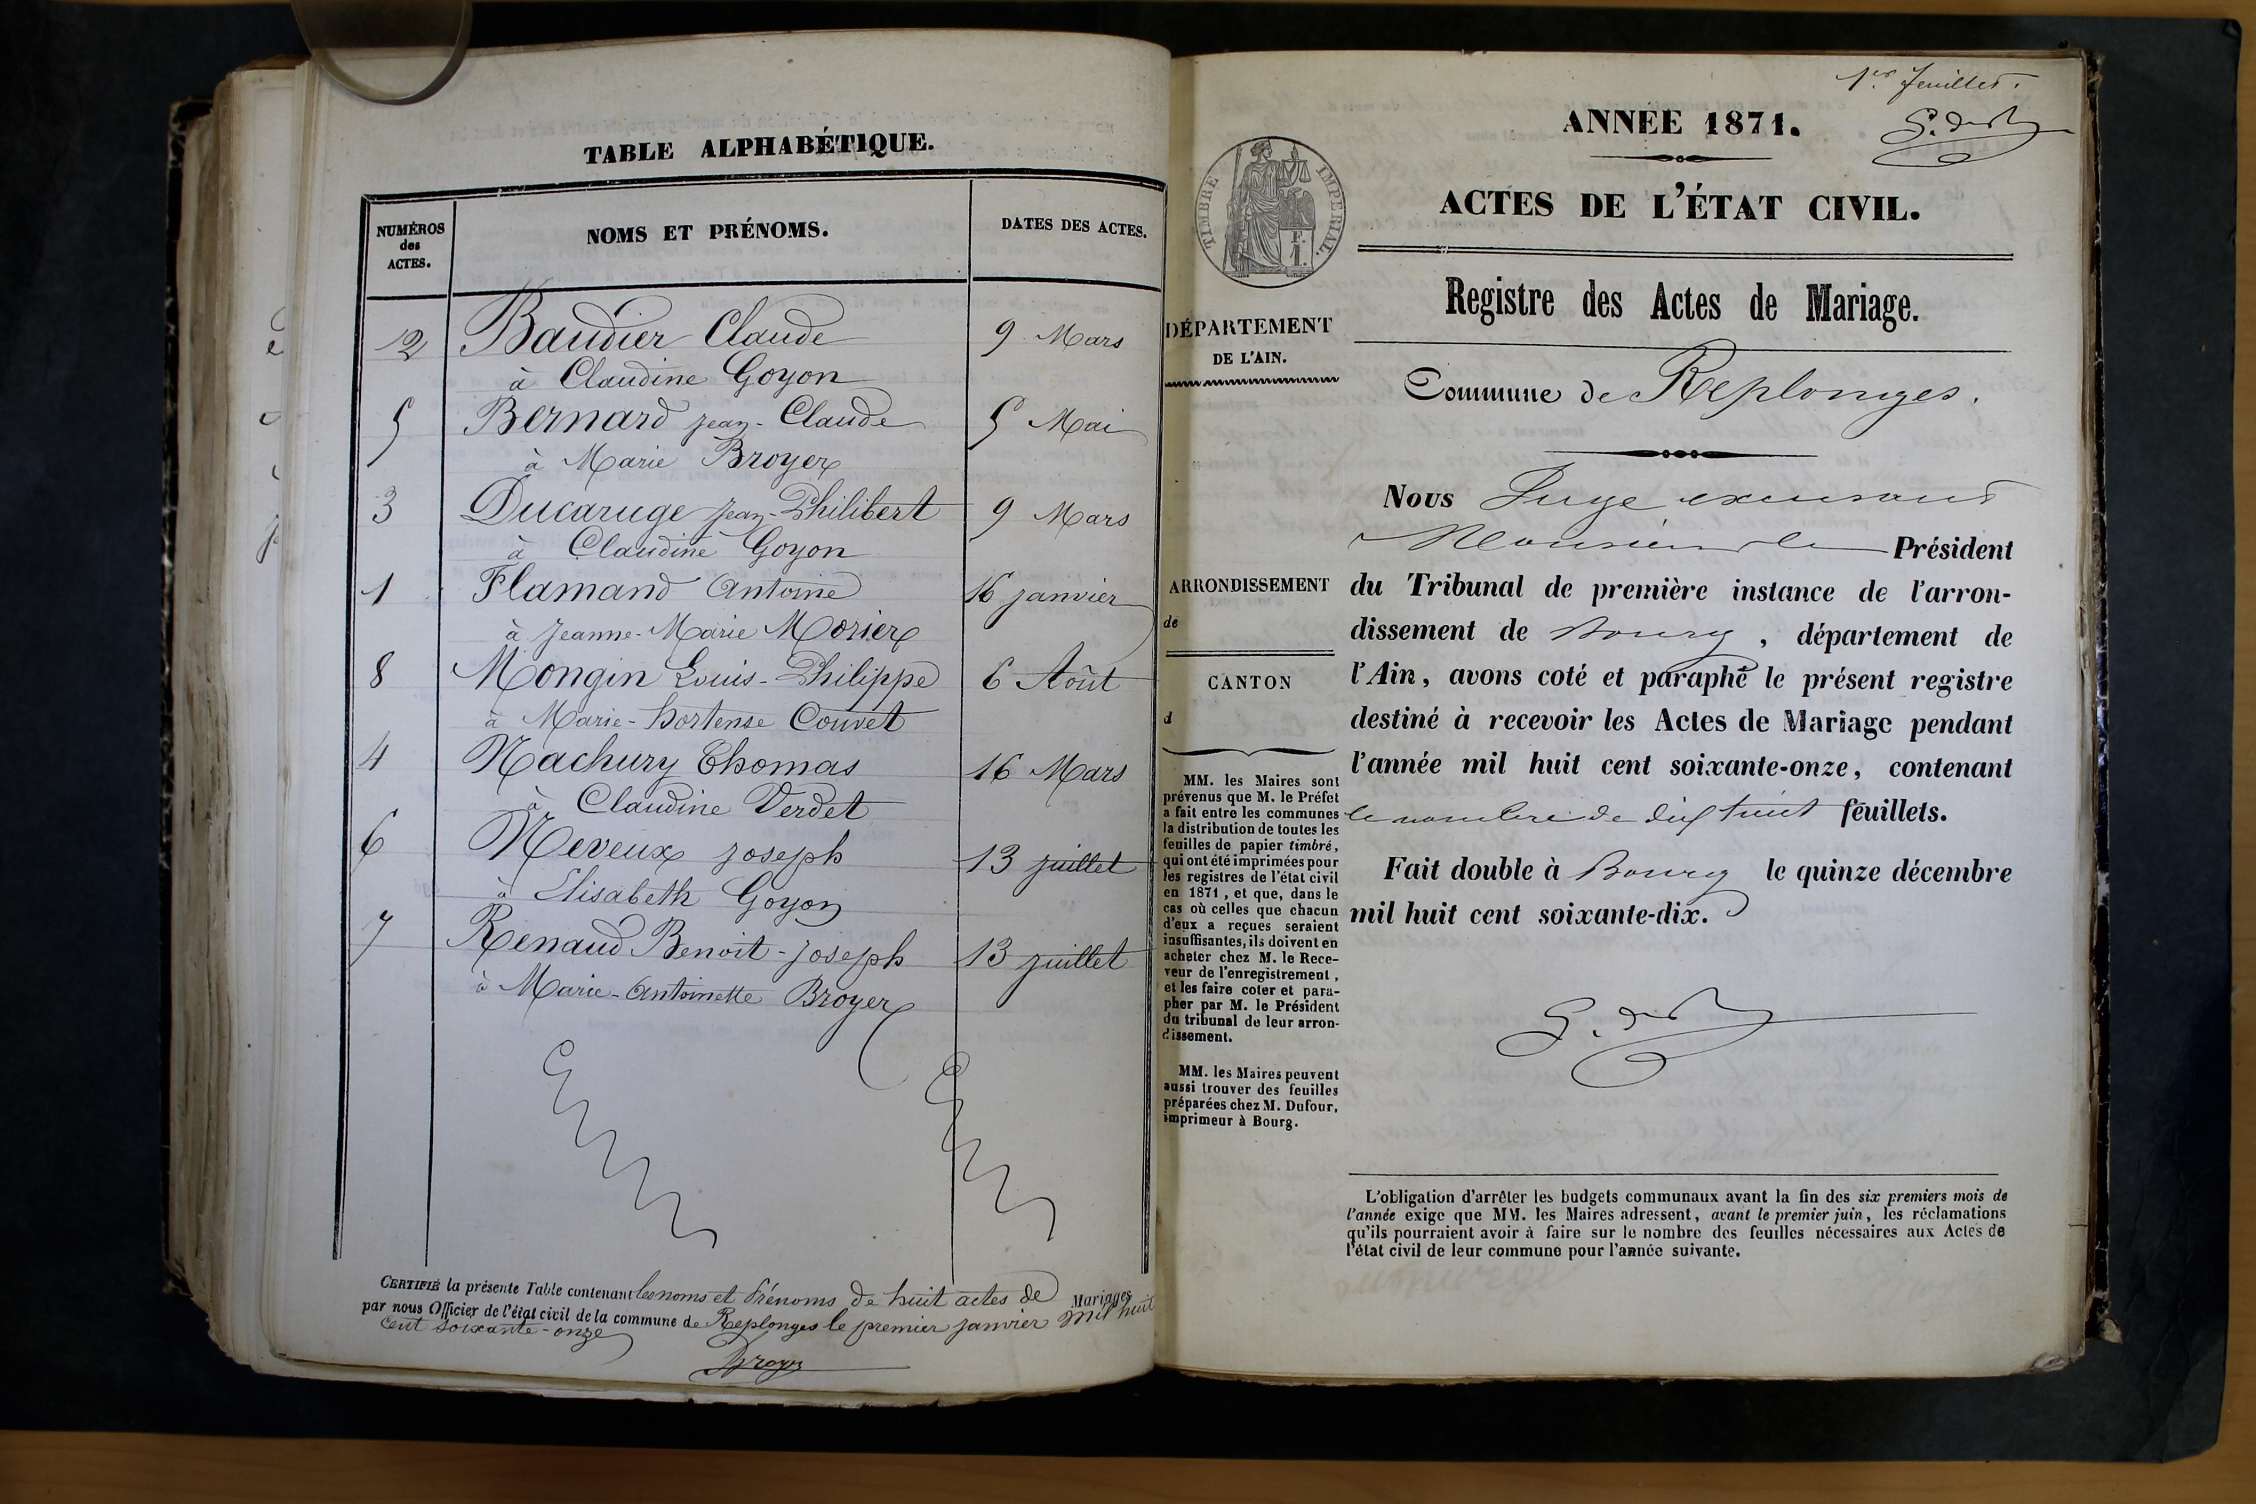 TABLE ALPHABÉTIQUE.
NUMÉROS
des
ACTES.
NOMS ET PRÉNOMS.
DATES DES ACTES.
2 Baudier Claude 9 Mars
à Claudine Goyon
5 Bernard Jean-Claude 5 Mai
à Marie Broyer
3 Ducaruge Jean-Philibert 9 Mars
à Claudine Goyon
1 Flamand Antoine 16 janvier
à Jeanne-Marie Morier
8 Mongin Louis-Philippe 6 Août
à Marie-hortense Couvet
4 Nachury Thomas 16 Mars
à Claudine Verdet
6 Neveux Joseph 13 juillet
à Elisabeth Goyon
7 Renaud Benoit-Joseph 13 juillet
à Marie-Antoinette Broyer
CERTIFIÉ la présente Table contenant les noms et Prénoms de huit actes de Mariages
par nous Officier de l'état civil de la commune de Replonges le premier janvier mil huit
cent soixante-onze
Broyer
1er feuillet.
ANNÉE 1871.
ACTES DE L'ÉTAT CIVIL.
TIMBRE IMPERIAL.
F.
1.
Registre des Actes de Mariage.
DÉPARTEMENT
DE L'AIN.
Commune de Replonges.
ARRONDISSEMENT
de
CANTON
d
MM. les Maires sont
prévenus que M. le Préfet
a fait entre les communes
la distribution de toutes les
feuilles de papier timbré,
qui ont été imprimées pour
les registres de l'état civil
en 1871, et que, dans le
cas où celles que chacun
d'eux a reçues seraient
insuffisantes, ils doivent en
acheter chez M. le Rece-
veur de l'enregistrement,
et les faire coter et para-
pher par M. le Président
du tribunal de leur arron-
dissement.
MM. les Maires peuvent
aussi trouver des feuilles
préparées chez M. Dufour,
imprimeur à Bourg.
Nous Juge
Monsieur le Président
du Tribunal de première instance de l'arron-
dissement de Bourg, département de
l'Ain, avons coté et paraphé le présent registre
destiné à recevoir les Actes de Mariage pendant
l'année mil huit cent soixante-onze, contenant
le nombre de dix huit feuillets.
Fait double à Bourg le quinze décembre
mil huit cent soixante-dix.
L'obligation d'arrêter les budgets communaux avant la fin des six premiers mois de
l'année exige que MM. les Maires adressent, avant le premier juin, les réclamations
qu'ils pourraient avoir à faire sur le nombre des feuilles nécessaires aux Actes de
l'état civil de leur commune pour l'année suivante.